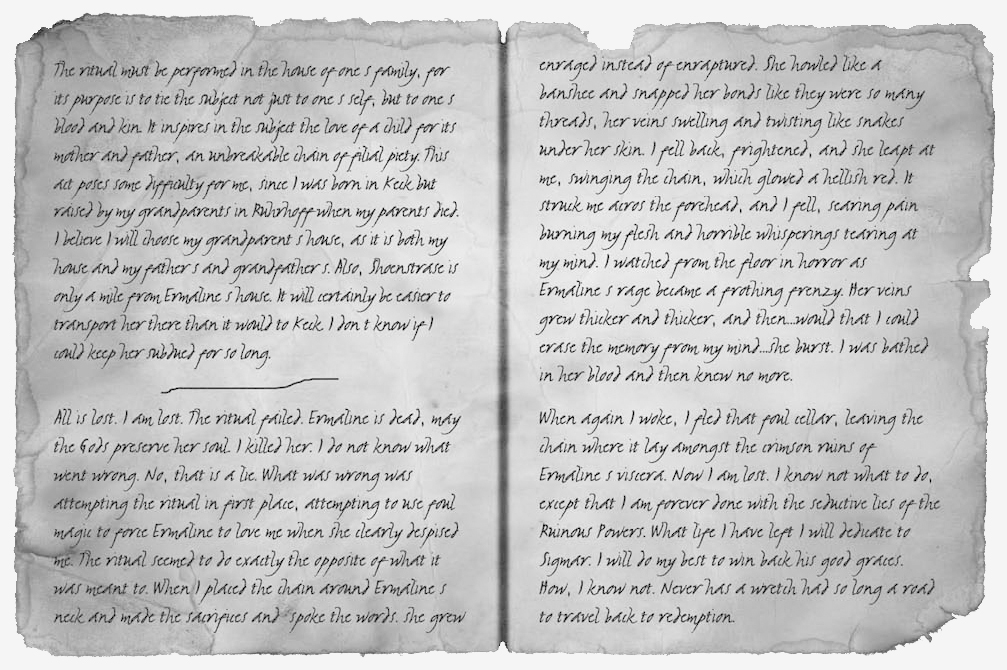 The ritual must be performed in the house of one s family, for
its purpose is to tie the subject not just to one s self, but to one s
blood and kin. It inspires in the subject the love of a child for its
mother and father, an unbreakable chain of filial piety. This
act poses some difficulty for me, since I was born in Keck but
raised by my grandparents in Ruhrhoff when my parents died.
I believe I will choose my grandparent s house, as it is both my
house and my father s and grandfather s. Also, Shoenstrase is
only a mile from Ermaline s house. It will certainly be easier to
transport her there than it would to Keck. I don t know if I
could keep her subdued for so long.
All is lost. I am lost. The ritual failed. Ermaline is dead, may
the Gods preserve her soul. I killed her. I do not know what
went wrong. No, that is a lie. What was wrong was
attempting the ritual in first place, attempting to use foul
magic to force Ermaline to love me when she clearly despised
me. The ritual seemed to do exactly the opposite of what it
was meant to. When I placed the chain around Ermaline s
neck and made the sacrifices and spoke the words. she grew
enraged instead of enraptured. She howled like a
banshee and snapped her bonds like they were so many
threads, her veins swelling and twisting like snakes
under her skin. I fell back, frightened, and she leapt at
me, swinging the chain, which glowed a hellish red. It
struck me acros the forehead, and I fell, searing pain
burning my flesh and horrible whisperings tearing at
my mind. I watched from the floor in horror as
Ermaline s rage became a frothing frenzy. Her veins
grew thicker and thicker, and then...would that I could
erase the memory from my mind...she burst. I was bathed
in her blood and then knew no more.
When again I woke, I fled that foul cellar, leaving the
chain where it lay amongst the crimson ruins of
Ermaline s viscera. Now I am lost. I know not what to do,
except that I am forever done with the seductive lies of the
Ruinous Powers. What life I have left I will dedicate to
Sigmar. I will do my best to win back his good graces.
How, I know not. Never has a wretch had so long a road
to travel back to redemption.